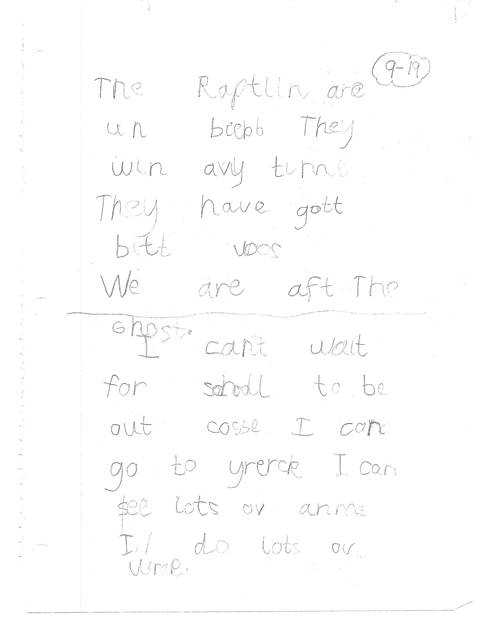 9-19
The Raptlin are
un beebb They
win avy tinne
They have gott
bitt voos
We are aft The
Ghost.
I can't wait
for school to be
out cosse I can
go to yrerck I can
see lots ov anms
I'l do lots ov
wrp.